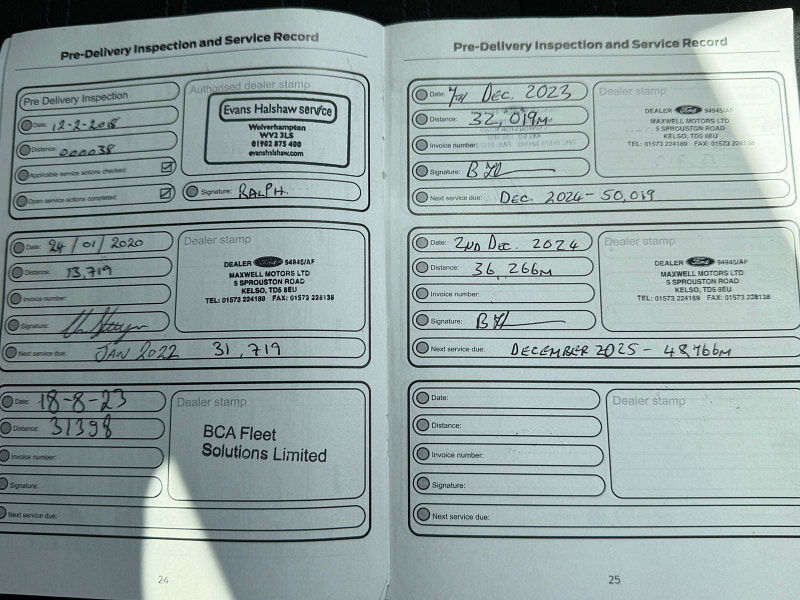 Pre-Delivery Inspection and Service Record
Pre Delivery Inspection
Date: 12-2-2018
Distance: 000038
Applicable service actions checked:
Open service actions completed:
Authorised dealer stamp
Evans Halshaw service
Wolverhampton
WV2 3LS
01902 875 400
evanshalshaw.com
Signature: RALPH.
Date: 24/01/2020
Distance: 13,719
Invoice number:
Signature:
Dealer stamp
DEALER Ford 94945/AF
MAXWELL MOTORS LTD
5 SPROUSTON ROAD
KELSO, TD5 8EU
TEL: 01573 224189 FAX: 01573 228138
Next service due: JAN 2022 31,719
Date: 18-8-23
Distance: 31398
Invoice number:
Signature:
Dealer stamp
BCA Fleet
Solutions Limited
Next service due:
24
Pre-Delivery Inspection and Service Record
Date: 7TH DEC. 2023
Distance: 32,019M
Invoice number:
Signature:
Dealer stamp
DEALER Ford 94945/AF
MAXWELL MOTORS LTD
5 SPROUSTON ROAD
KELSO, TD5 8EU
TEL: 01573 224189 FAX: 01573 228138
Next service due: DEC. 2024 - 50,019
Date: 2ND DEC. 2024
Distance: 36,266M
Invoice number:
Signature:
Dealer stamp
DEALER Ford 94945/AF
MAXWELL MOTORS LTD
5 SPROUSTON ROAD
KELSO, TD5 8EU
TEL: 01573 224189 FAX: 01573 228138
Next service due: DECEMBER 2025 - 48,766M
Date:
Distance:
Invoice number:
Signature:
Dealer stamp
Next service due:
25